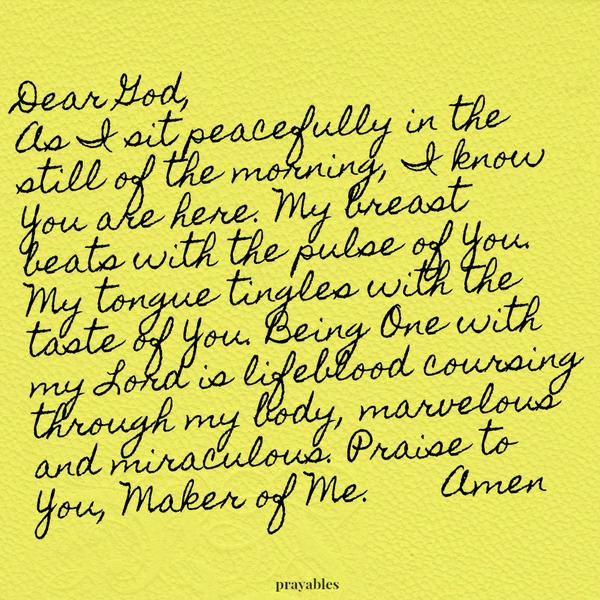 Dear God,
As I sit peacefully in the
still of the morning, I know
You are here. My breast
beats with the pulse of You.
My tongue tingles with the
taste of You. Being One with
my Lord is lifeblood coursing
through my body, marvelous
and miraculous. Praise to
You, Maker of Me. Amen
prayables